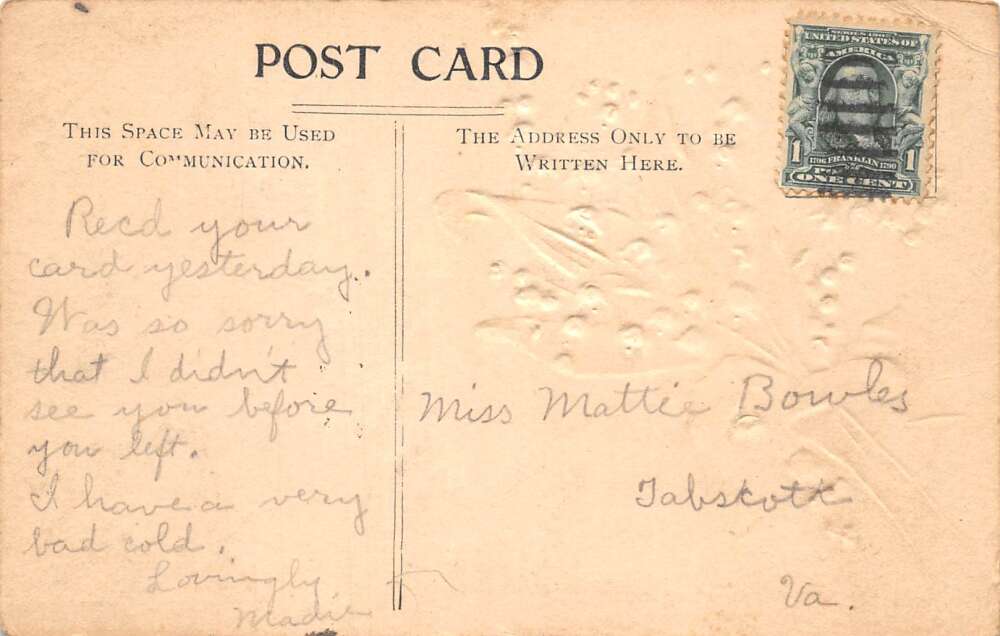 POST CARD
THIS SPACE MAY BE USED
FOR COMMUNICATION.
THE ADDRESS ONLY TO BE
WRITTEN HERE.
SERIES 1902
UNITED STATES OF
AMERICA
1 1706 FRANKLIN 1790 1
ONE CENT
Recd your
card yesterday.
Was so sorry
that I didn't
see you before
you left.
I have a very
bad cold.
Lovingly
Madie
Miss Mattie Bowles
Tabscott
Va.